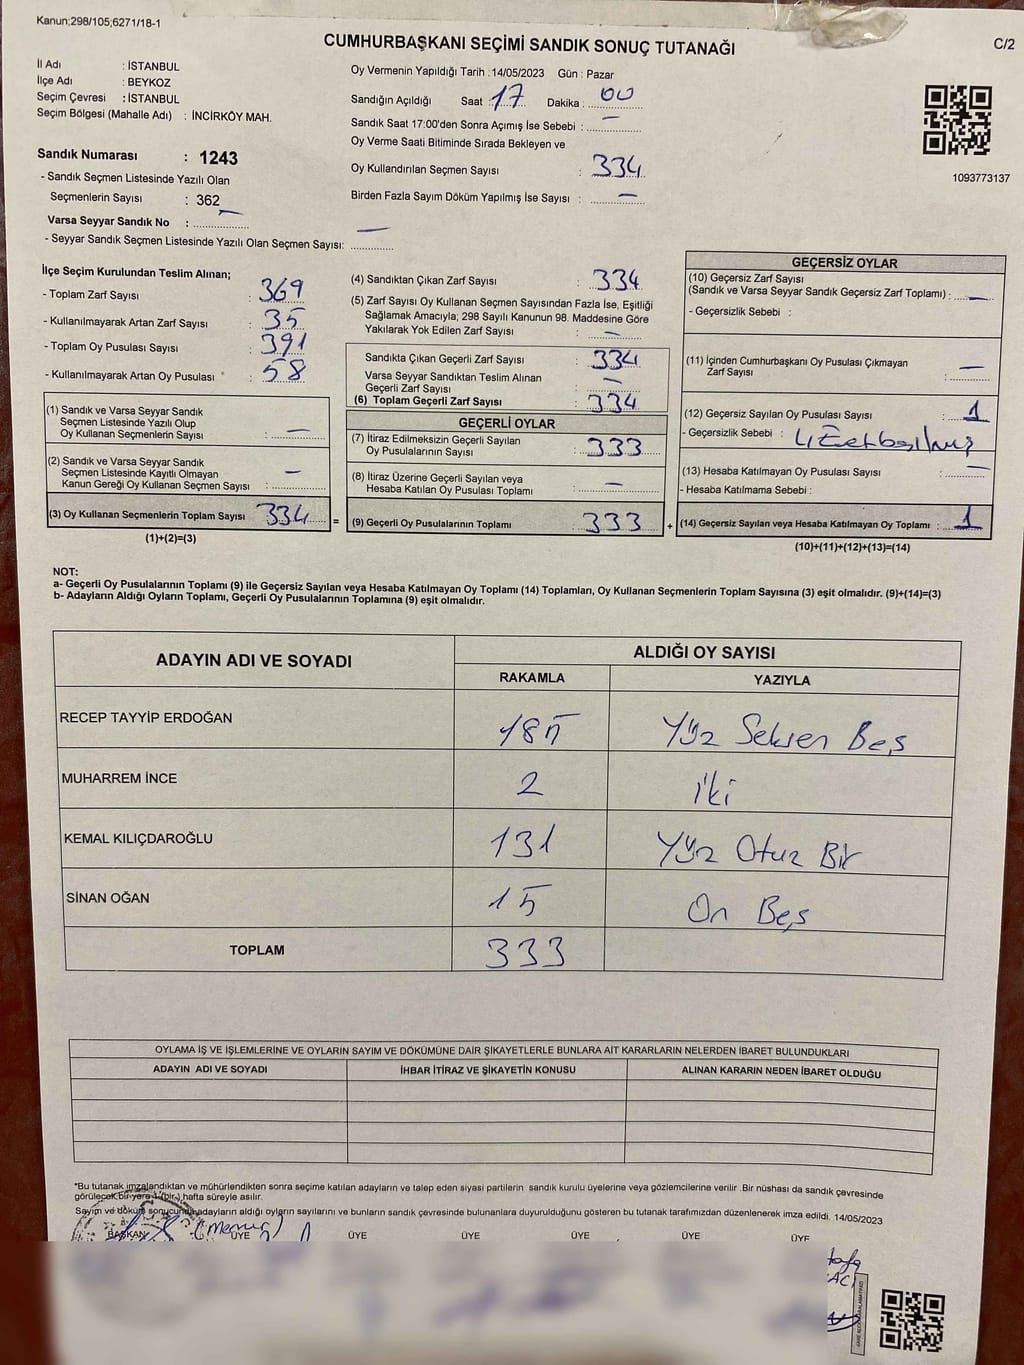 Kanun;298/105;6271/18-1
CUMHURBAŞKANI SEÇİMİ SANDIK SONUÇ TUTANAĞI
C/2
İl Adı : İSTANBUL
İlçe Adı : BEYKOZ
Seçim Çevresi : İSTANBUL
Seçim Bölgesi (Mahalle Adı) : İNCİRKÖY MAH.
Sandık Numarası : 1243
- Sandık Seçmen Listesinde Yazılı Olan
Seçmenlerin Sayısı : 362
Varsa Seyyar Sandık No : —
- Seyyar Sandık Seçmen Listesinde Yazılı Olan Seçmen Sayısı: —
Oy Vermenin Yapıldığı Tarih :14/05/2023 Gün : Pazar
Sandığın Açıldığı Saat : 17 Dakika : 00
Sandık Saat 17:00'den Sonra Açımış İse Sebebi : —
Oy Verme Saati Bitiminde Sırada Bekleyen ve
Oy Kullandırılan Seçmen Sayısı : 334
Birden Fazla Sayım Döküm Yapılmış İse Sayısı : —
1093773137
İlçe Seçim Kurulundan Teslim Alınan;
- Toplam Zarf Sayısı : 369
- Kullanılmayarak Artan Zarf Sayısı : 35
- Toplam Oy Pusulası Sayısı : 391
- Kullanılmayarak Artan Oy Pusulası : 58
(1) Sandık ve Varsa Seyyar Sandık
Seçmen Listesinde Yazılı Olup
Oy Kullanan Seçmenlerin Sayısı : —
(2) Sandık ve Varsa Seyyar Sandık
Seçmen Listesinde Kayıtlı Olmayan
Kanun Gereği Oy Kullanan Seçmen Sayısı : —
(3) Oy Kullanan Seçmenlerin Toplam Sayısı 334 =
(1)+(2)=(3)
(4) Sandıktan Çıkan Zarf Sayısı : 334
(5) Zarf Sayısı Oy Kullanan Seçmen Sayısından Fazla İse, Eşitliği
Sağlamak Amacıyla; 298 Sayılı Kanunun 98. Maddesine Göre
Yakılarak Yok Edilen Zarf Sayısı : —
Sandıkta Çıkan Geçerli Zarf Sayısı : 334
Varsa Seyyar Sandıktan Teslim Alınan
Geçerli Zarf Sayısı : —
(6) Toplam Geçerli Zarf Sayısı : 334
GEÇERLİ OYLAR
(7) İtiraz Edilmeksizin Geçerli Sayılan
Oy Pusulalarının Sayısı : 333
(8) İtiraz Üzerine Geçerli Sayılan veya
Hesaba Katılan Oy Pusulası Toplamı : —
(9) Geçerli Oy Pusulalarının Toplamı : 333 +
GEÇERSİZ OYLAR
(10) Geçersiz Zarf Sayısı
(Sandık ve Varsa Seyyar Sandık Geçersiz Zarf Toplamı) : —
- Geçersizlik Sebebi :
(11) İçinden Cumhurbaşkanı Oy Pusulası Çıkmayan
Zarf Sayısı : —
(12) Geçersiz Sayılan Oy Pusulası Sayısı : 1
- Geçersizlik Sebebi :
(13) Hesaba Katılmayan Oy Pusulası Sayısı : —
- Hesaba Katılmama Sebebi :
(14) Geçersiz Sayılan veya Hesaba Katılmayan Oy Toplamı : 1
(10)+(11)+(12)+(13)=(14)
NOT:
a- Geçerli Oy Pusulalarının Toplamı (9) ile Geçersiz Sayılan veya Hesaba Katılmayan Oy Toplamı (14) Toplamları, Oy Kullanan Seçmenlerin Toplam Sayısına (3) eşit olmalıdır. (9)+(14)=(3)
b- Adayların Aldığı Oyların Toplamı, Geçerli Oy Pusulalarının Toplamına (9) eşit olmalıdır.
ADAYIN ADI VE SOYADI
ALDIĞI OY SAYISI
RAKAMLA YAZIYLA
RECEP TAYYİP ERDOĞAN 185 Yüz Seksen Beş
MUHARREM İNCE 2 iki
KEMAL KILIÇDAROĞLU 131 Yüz Otuz Bir
SİNAN OĞAN 15 On Beş
TOPLAM 333
OYLAMA İŞ VE İŞLEMLERİNE VE OYLARIN SAYIM VE DÖKÜMÜNE DAİR ŞİKAYETLERLE BUNLARA AİT KARARLARIN NELERDEN İBARET BULUNDUKLARI
ADAYIN ADI VE SOYADI İHBAR İTİRAZ VE ŞİKAYETİN KONUSU ALINAN KARARIN NEDEN İBARET OLDUĞU
*Bu tutanak imzalandıktan ve mühürlendikten sonra seçime katılan adayların ve talep eden siyasi partilerin sandık kurulu üyelerine veya gözlemcilerine verilir .Bir nüshası da sandık çevresinde
görülecek bir yere 1 (bir ) hafta süreyle asılır.
Sayım ve döküm sonucunu adayların aldığı oyların sayılarını ve bunların sandık çevresinde bulunanlara duyurulduğunu gösteren bu tutanak tarafımızdan düzenlenerek imza edildi. 14/05/2023
BAŞKAN (Memur) ÜYE ÜYE ÜYE ÜYE ÜYE ÜYE